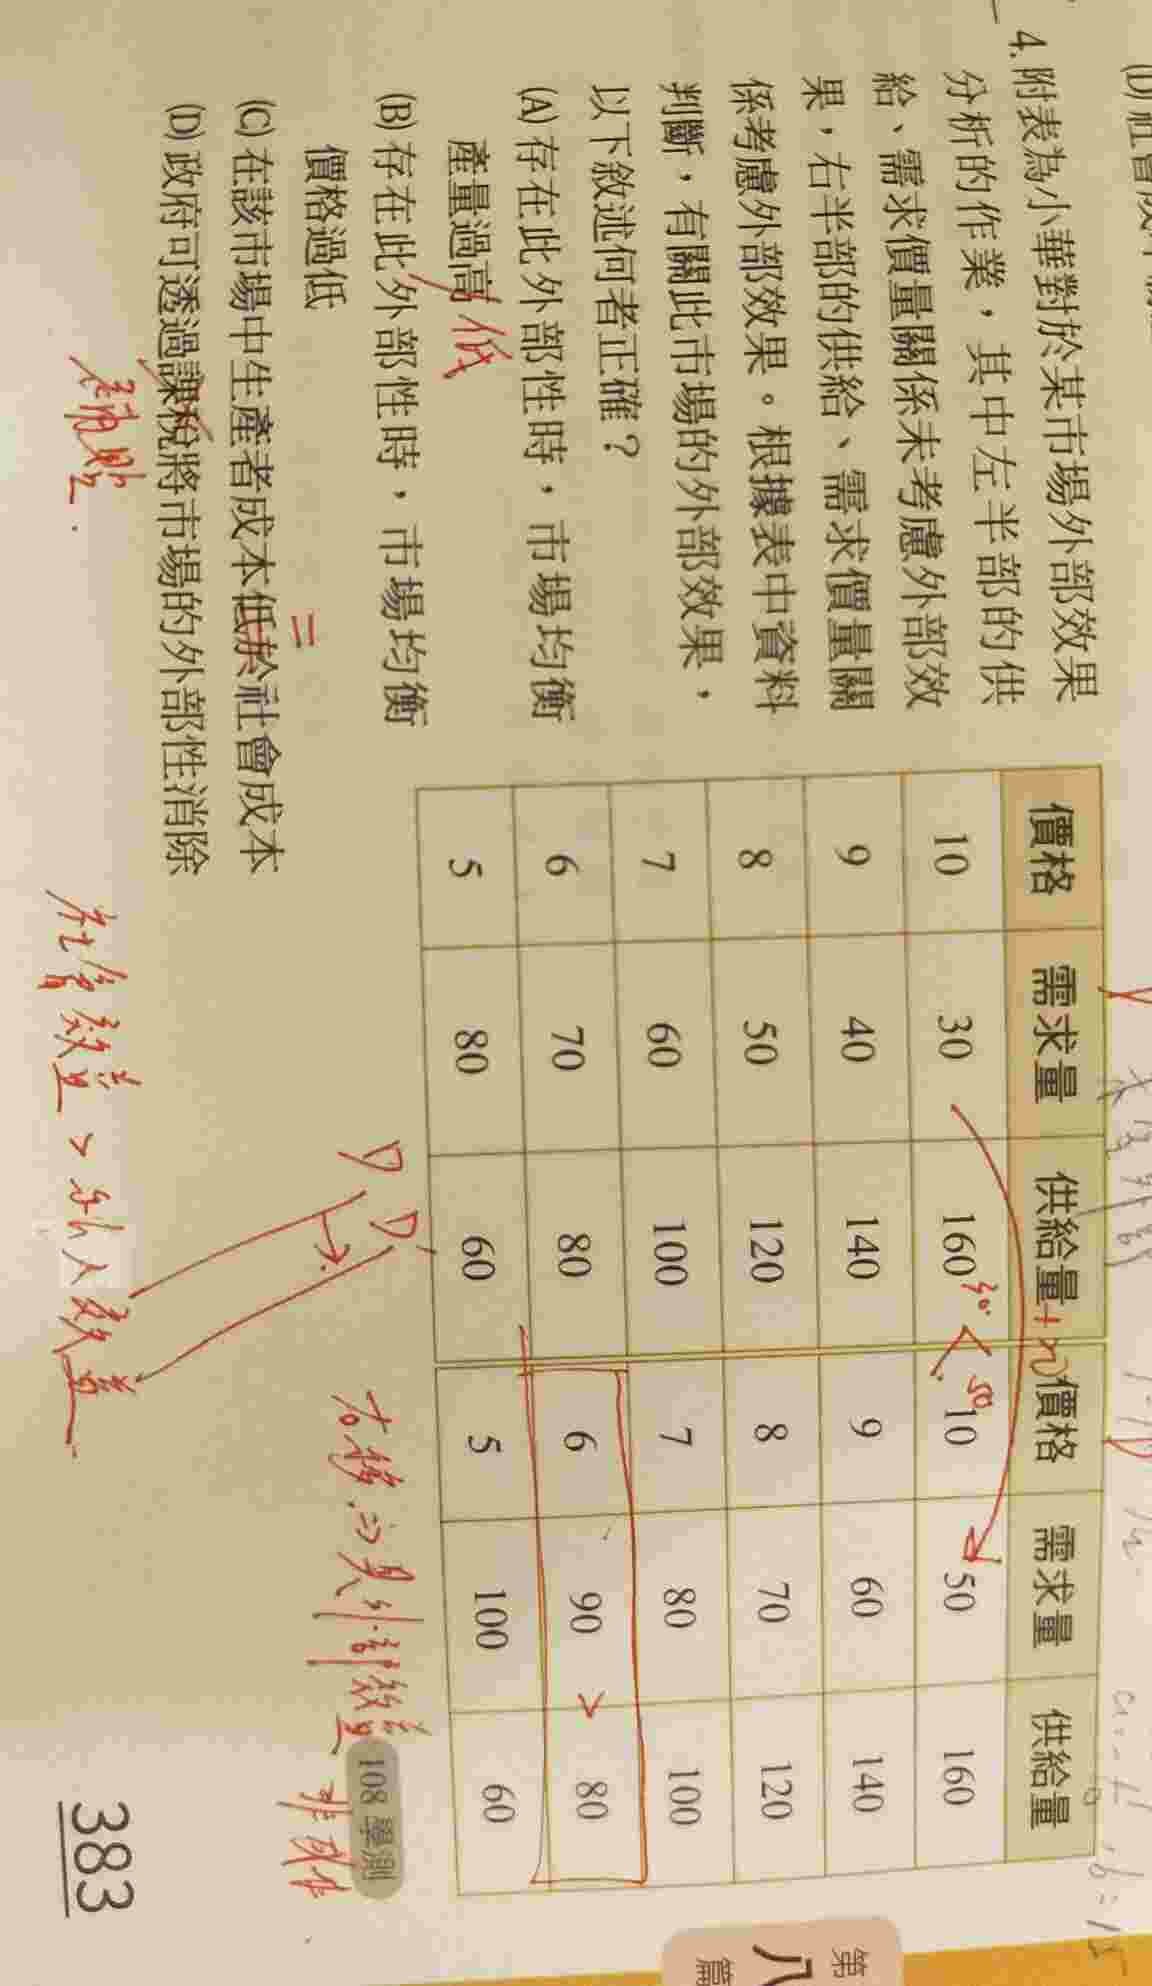 4. 附表為小華對於某市場外部效果
分析的作業，其中左半部的供
給、需求價量關係未考慮外部效
果，右半部的供給、需求價量關
係考慮外部效果。根據表中資料
判斷，有關此市場的外部效果，
以下敘述何者正確？
(A) 存在此外部性時，市場均衡
產量過高 低
(B) 存在此外部性時，市場均衡
價格過低
(C) 在該市場中生產者成本低於社會成本
=
(D) 政府可透過課稅將市場的外部性消除
補貼.
價格 需求量 供給量 價格 需求量 供給量
10 30 160 10 50 160
9 40 140 9 60 140
8 50 120 8 70 120
7 60 100 7 80 100
6 70 80 6 90 > 80
5 80 60 5 100 60
D D'
社會效益 > 私人效益
右移
外部效益
108 學測
383
第
八
篇